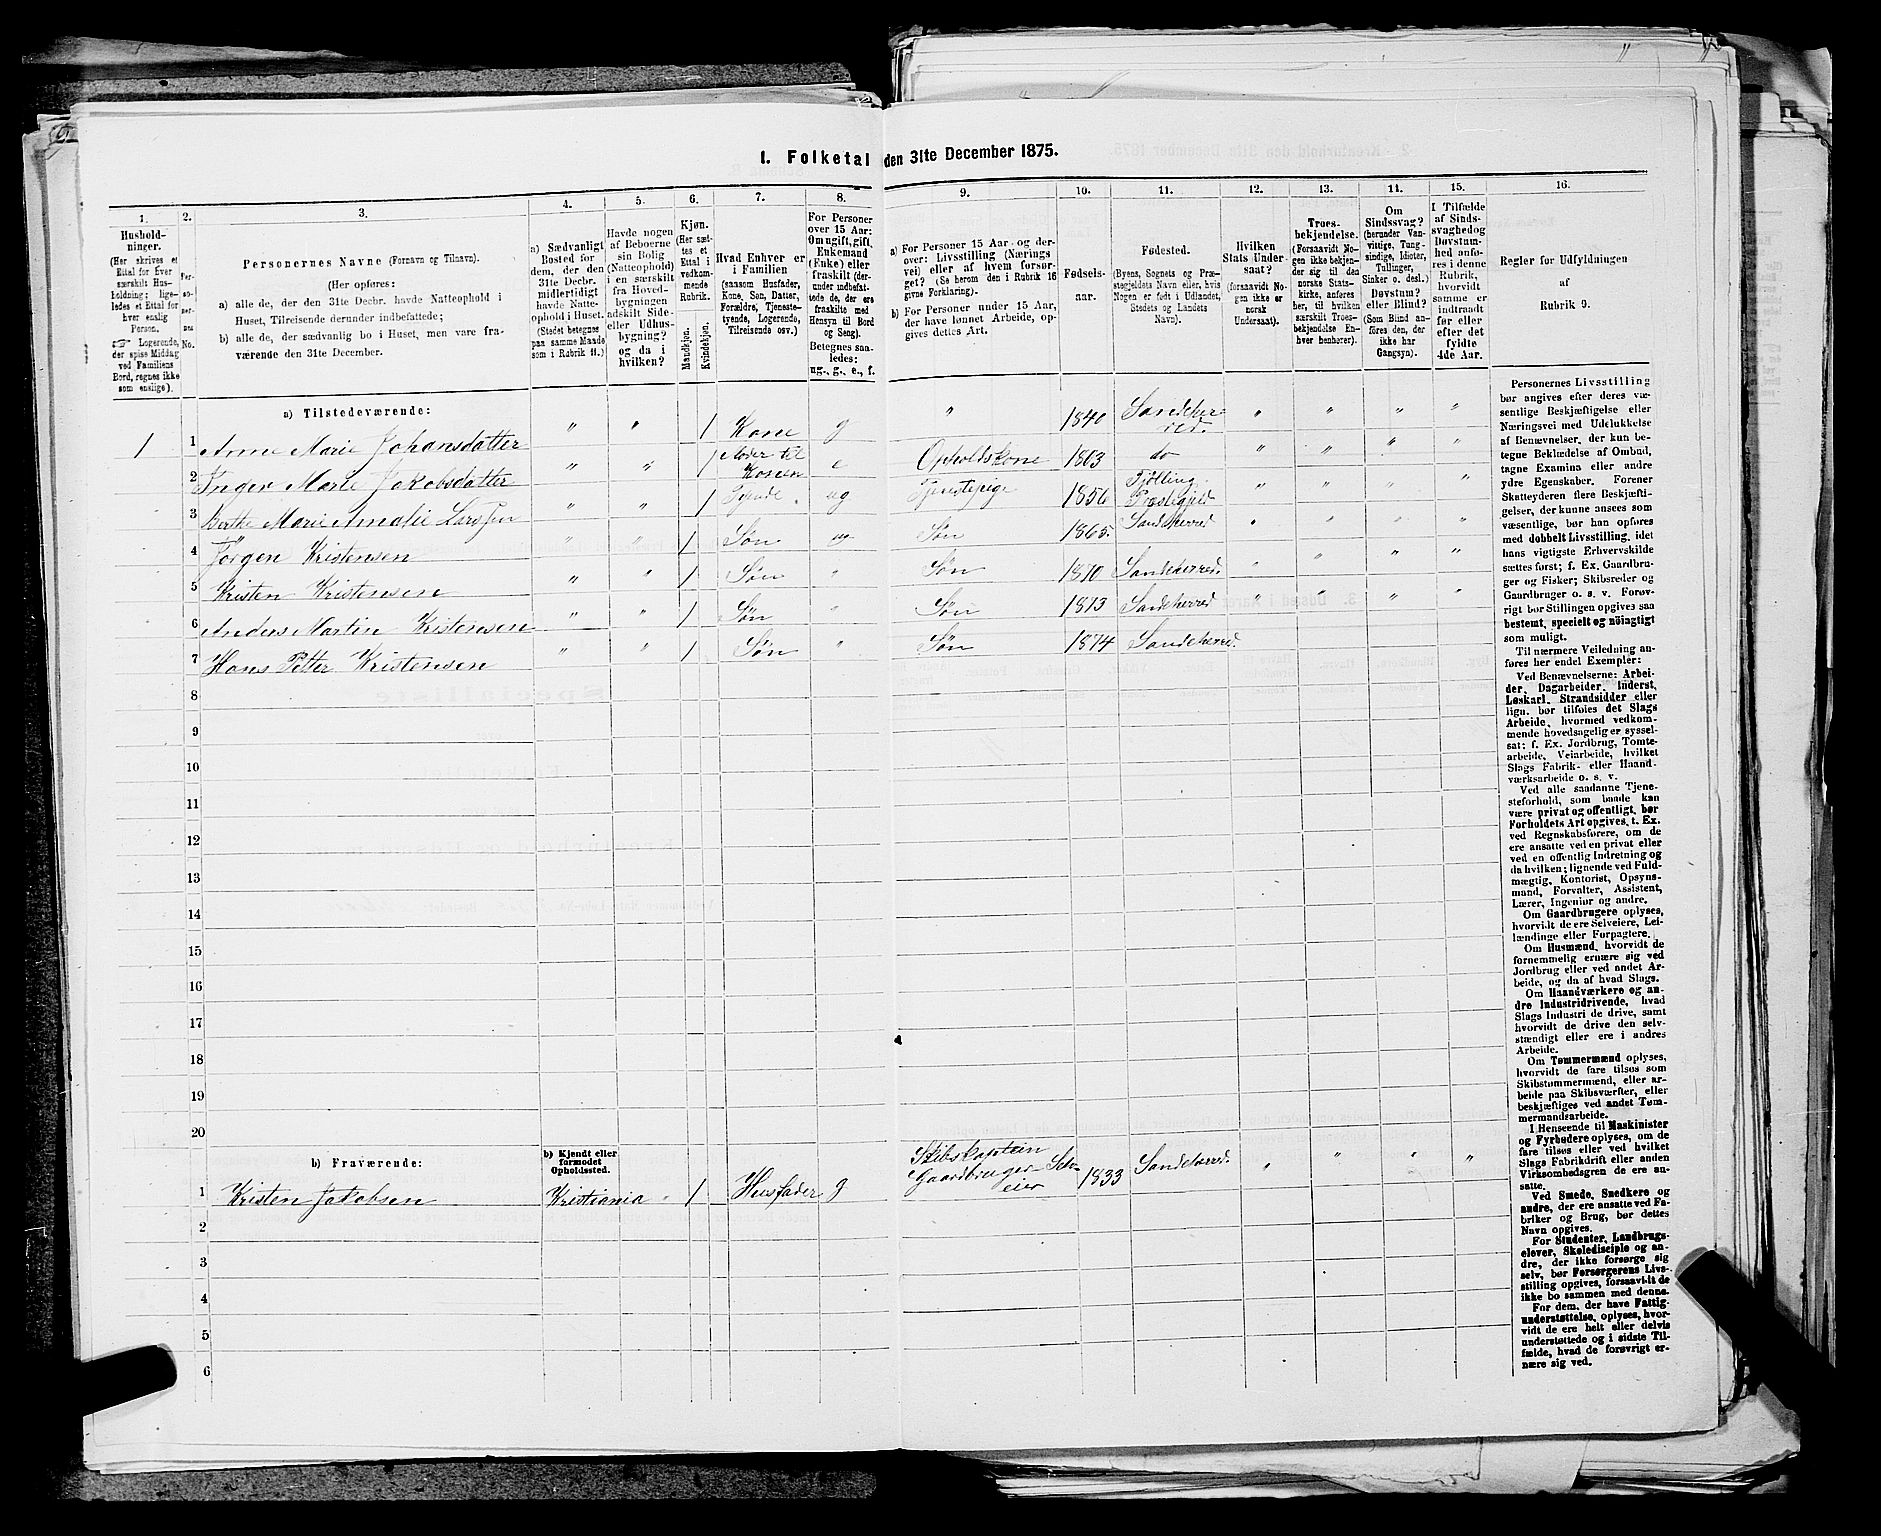 1. Folketal den 31te December 1875.
1.
Hushold-
ninger.
(Her skrives et
Ettal for hver
særskilt Hus-
holdning; lige-
ledes et Ettal for
hver enslig
Person.
Logerende,
der spise Middag
ved Familiens
Bord, regnes ikke
som enslige).
2.
Per-
so-
ner-
nes
No.
3.
Personernes Navne (Fornavn og Tilnavn).
(Her opføres:
a) alle de, der den 31te Decbr. havde Natteophold i
Huset, Tilreisende derunder indbefattede;
b) alle de, der sædvanlig bo i Huset, men vare fra-
værende den 31te December.
4.
a) Sædvanligt
Bosted for
dem, der den
31te Decbr.
midlertidigt
havde Natte-
ophold i Huset.
(Stedet betegnes
paa samme Maade
som i Rubrik 11.)
5.
Havde nogen
af Beboerne
sin Bolig
(Natteophold)
i en særskilt
fra Hoved-
bygningen
adskilt Side-
eller Udhus-
bygning?
og da i
hvilken?
6.
Kjøn.
(Her sæt-
tes et
Ettal i
vedkom-
mende
Rubrik.
Mandkjøn.
Kvindekjøn.
7.
Hvad Enhver er
i Familien
(saasom Husfader,
Kone, Søn, Datter,
Forældre, Tjeneste-
tyende, Logerende,
Tilreisende osv.)
8.
For Personer
over 15 Aar:
Om ugift, gift,
Enkemand
(Enke) eller
fraskilt (der-
under indbefat-
tede de, der ere
fraskilte med
Hensyn til Bord
og Seng).
Betegnes saa-
ledes:
ug., g., e., f.
9.
a) For Personer 15 Aar og der-
over: Livsstilling (Nærings
vei) eller af hvem forsør-
get? (Se herom den i Rubrik 16
givne Forklaring).
b) For Personer under 15 Aar,
der have lønnet Arbeide, op-
gives dettes Art.
10.
Fødsels-
aar.
11.
Fødested.
(Byens, Sognets og Præ-
stegjeldets Navn eller, hvis
Nogen er født i Udlandet,
Stedets og Landets
Navn).
12.
Hvilken
Stats Under-
saat?
(forsaavidt No-
gen ikke er
norsk
Undersaat).
13.
Troes-
bekjendelse.
(Forsaavidt No-
gen ikke bekjen-
der sig til den
norske Stats-
kirke, anføres
her, til hvilken
særskilt Troes-
bekjendelse En-
hver henhører).
14.
Om
Sindssvag?
(herunder Van-
vittige, Tung-
sindige, Idioter,
Tullinger,
Sinker o. desl.)
Døvstum?
eller Blind?
(Som Blind an-
føres den, der
ikke har
Gangsyn).
15.
I Tilfælde
af Sinds-
svaghed og
Døvstum-
hed anfø-
res i denne
Rubrik,
hvorvidt
samme er
indtraadt
før eller
efter det
fyldte
4de Aar.
16.
Regler for Udfyldningen
af
Rubrik 9.
a) Tilstedeværende:
1 1 Anne Marie Johansdatter " " 1 Kone g " 1840 Sandeher
red. " " " "
2 Inger Marie Jakobsdatter " " 1 Moder til
Konen e Opholdskone 1803 do " " " "
3 Berthe Marie Amalie Larssen " " 1 Tyende ug Tjenestepige 1856 Tjølling
Præstegjeld " " " "
4 Jörgen Kristensen " " 1 Søn ug Søn 1865. Sandeherred " " " "
5 Kristen Kristensen " " 1 Søn " Søn 1870 Sandeherred. " " " "
6 Anders Martin Kristensen " " 1 Søn " Søn 1873 Sandeherred " " " "
7 Hans Petter Kristensen " " 1 Søn " Søn 1874 Sandeherred.
8
9
10
11
12
13
14
15
16
17
18
19
20
b) Fraværende:
b) Kjendt eller
formodet
Opholdssted.
1 Kristen Jakobsen Kristiania " 1 Husfader g Skibskaptein
Gaardbruger Selv
eier 1833 Sandeherred. " " " "
2
3
4
5
6
Personernes Livsstilling
bør angives efter deres væ-
sentlige Beskjæftigelse eller
Næringsvei med Udelukkelse
af Benævnelser, der kun be-
tegne Beklædelse af Ombud,
tagne Examina eller andre
ydre Egenskaber. Forener
Skatteyderen flere Beskjæfti-
gelser, der kunne ansees som
væsentlige, bør han opføres
med dobbelt Livsstilling, idet
hans vigtigste Erhvervskilde
sættes først; f. Ex. Gaardbru-
ger og Fisker; Skibsreder og
Gaardbruger o. s. v. Forøv-
rigt bør Stillingen opgives saa
bestemt, specielt og nøiagtigt
som muligt.
Til nærmere Veiledning an-
føres her endel Exempler:
Ved Benævnelserne: Arbei-
der, Dagarbeider, Inderst,
Løskarl, Strandsidder eller
lign. bør tilføies det Slags
Arbeide, hvormed vedkom-
mende hovedsagelig er syssel-
sat; f. Ex. Jordbrug, Tomte-
arbeide, Veiarbeide, hvilket
Slags Fabrik- eller Haand-
værksarbeide o. s. v.
Ved alle saadanne Tjene-
steforhold, som baade kan
være privat og offentligt, bør
Forholdets Art opgives, t. Ex.
ved Regnskabsførere, om de
ere ansatte ved en privat eller
ved en offentlig Indretning og
da hvilken; lignende ved Fuld-
mægtig, Kontorist, Opsyns-
mand, Forvalter, Assistent,
Lærer, Ingeniør og andre.
Om Gaardbrugere oplyses,
hvorvidt de ere Selveiere, Lei-
lændinge eller Forpagtere.
Om Husmænd, hvorvidt de
fornemmelig ernære sig ved
Jordbrug eller ved andet Ar-
beide, og da af hvad Slags.
Om Haandværkere og an-
dre Industridrivende, hvad
Slags Industri de drive, samt
hvorvidt de drive den selv-
stændigt eller ere i andres
Arbeide.
Om Tømmermænd oplyses,
hvorvidt de fare tilsøs som
Skibstømmermænd, eller ar-
beide paa Skibsværfter, eller
beskjæftiges ved andet Tøm-
mermandsarbeide.
I Henseende til Maskinister
og Fyrbødere oplyses, om de
fare tilsøs eller ved hvilket
Slags Fabrikdrift eller anden
Virksomhedsgren de ere an-
satte.
Ved Smede, Snedkere og
andre, der ere ansatte ved Fa-
briker og Brug, bør dettes
Navn opgives.
For Studenter, Landbrugs-
elever, Skoledisciple og an-
dre, der ikke forsørge sig
selv, bør Forsørgerens Livs-
stilling opgives, forsaavidt de
ikke bo sammen med denne.
For dem, der have Fattig-
understøttelse, oplyses, hvor-
vidt de ere helt eller delvis
understøttede og i sidste Til-
fælde, hvad de forøvrigt er-
nære sig ved.